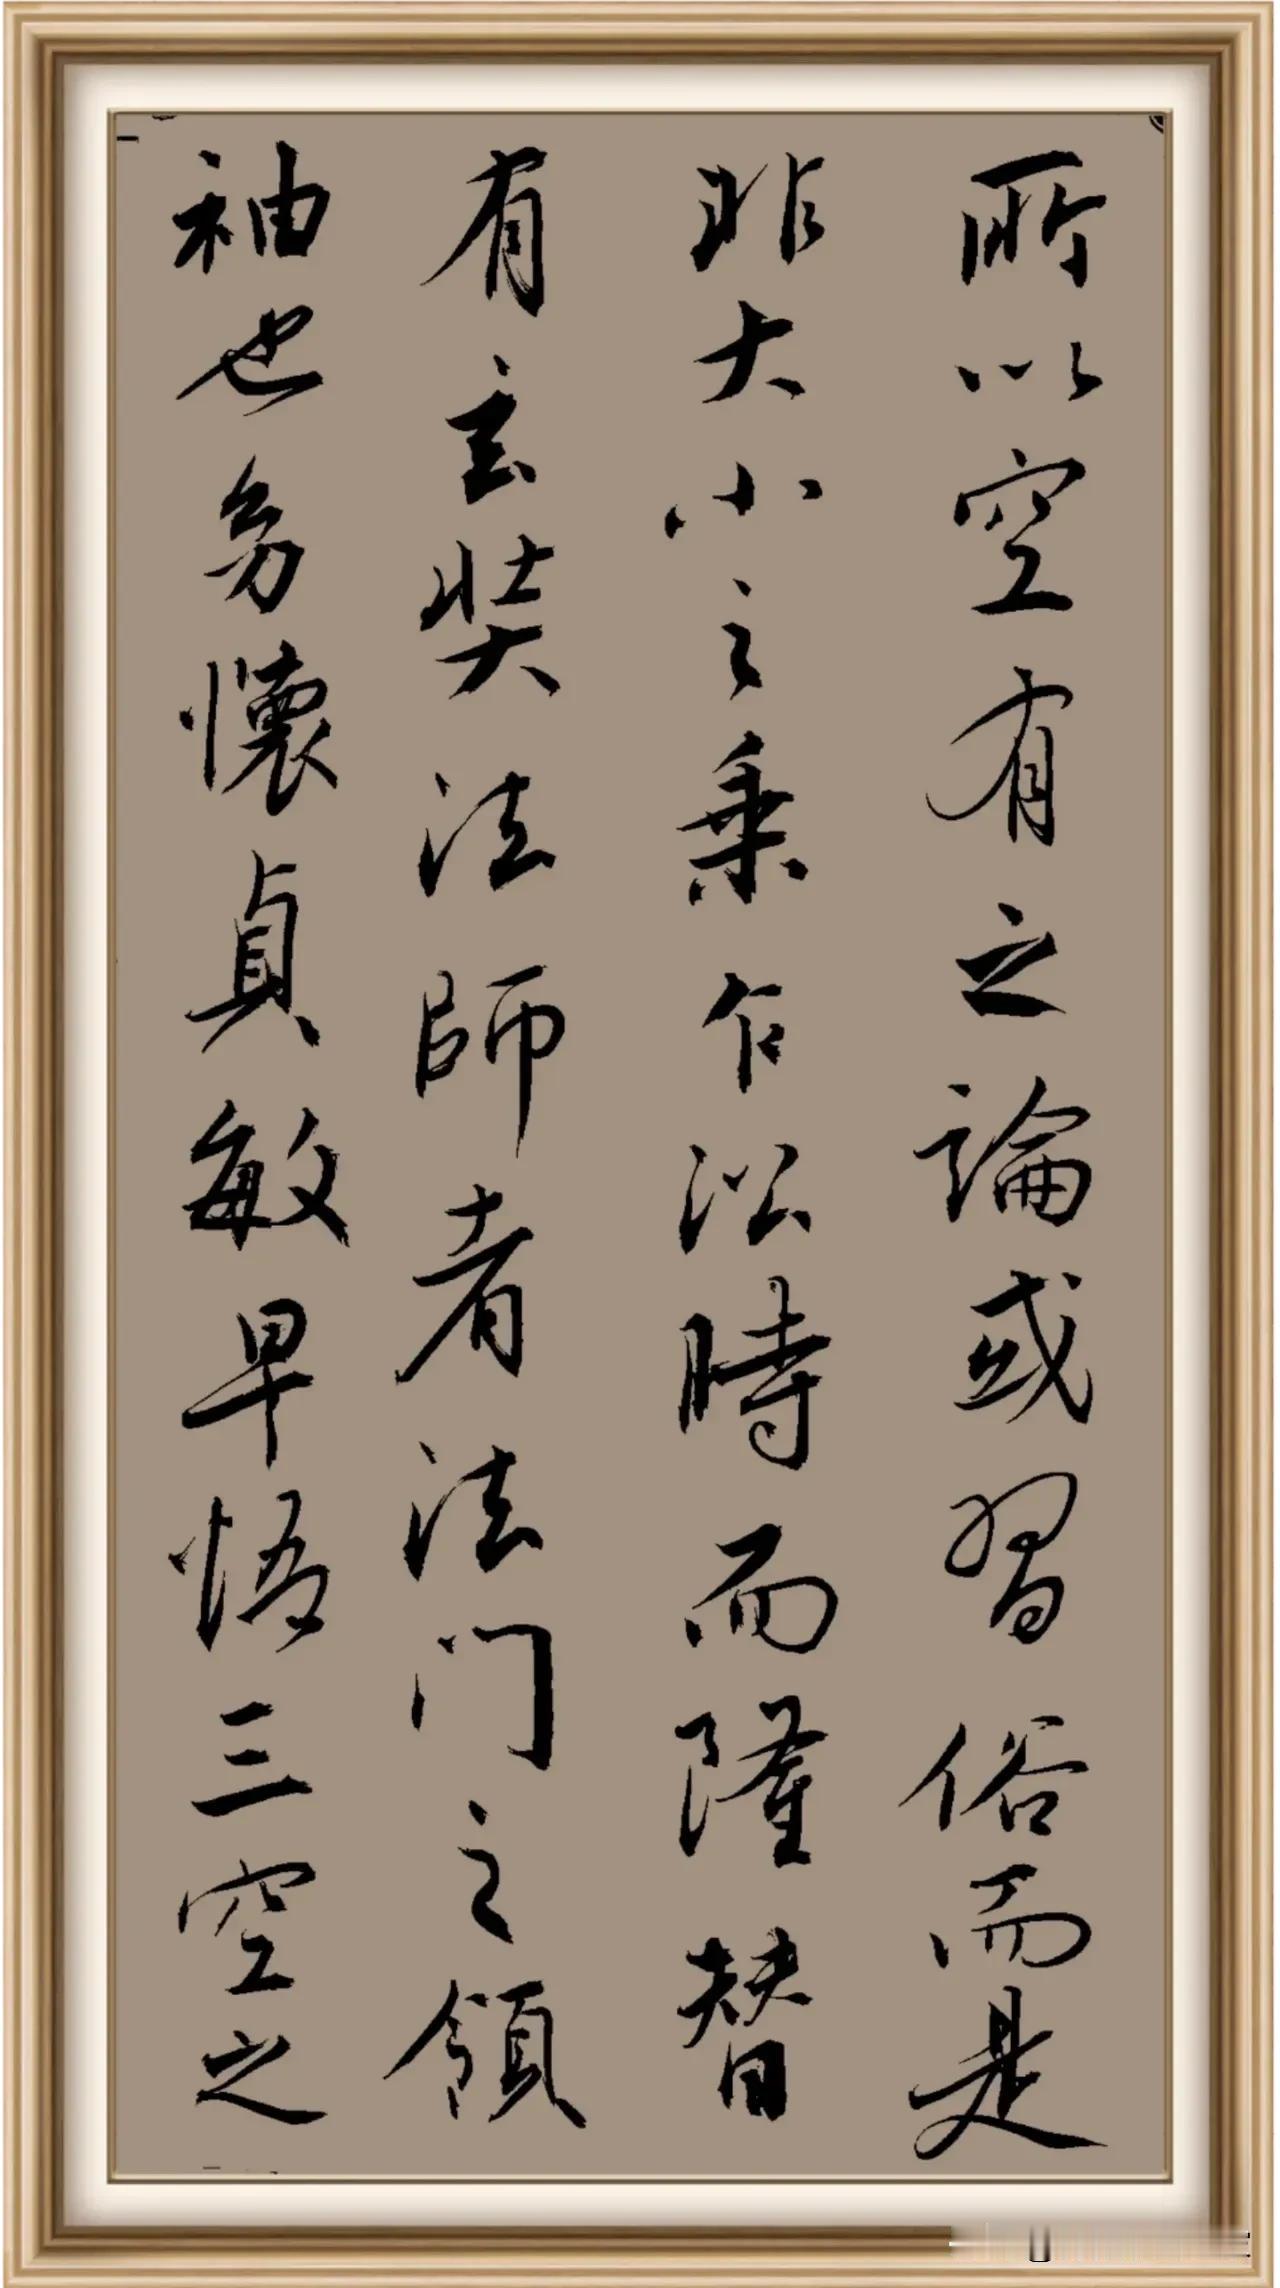 所以空有之論或習俗而是
非大小之乗乍㳂時而隆替
有玄奘法師者法門之領
袖也㓜懷貞敏早悟三空之